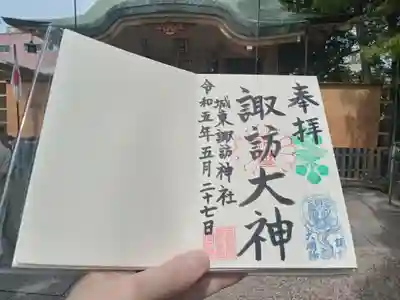 奉拝
諏訪大神
城東諏訪神社
令和五年五月二十七日